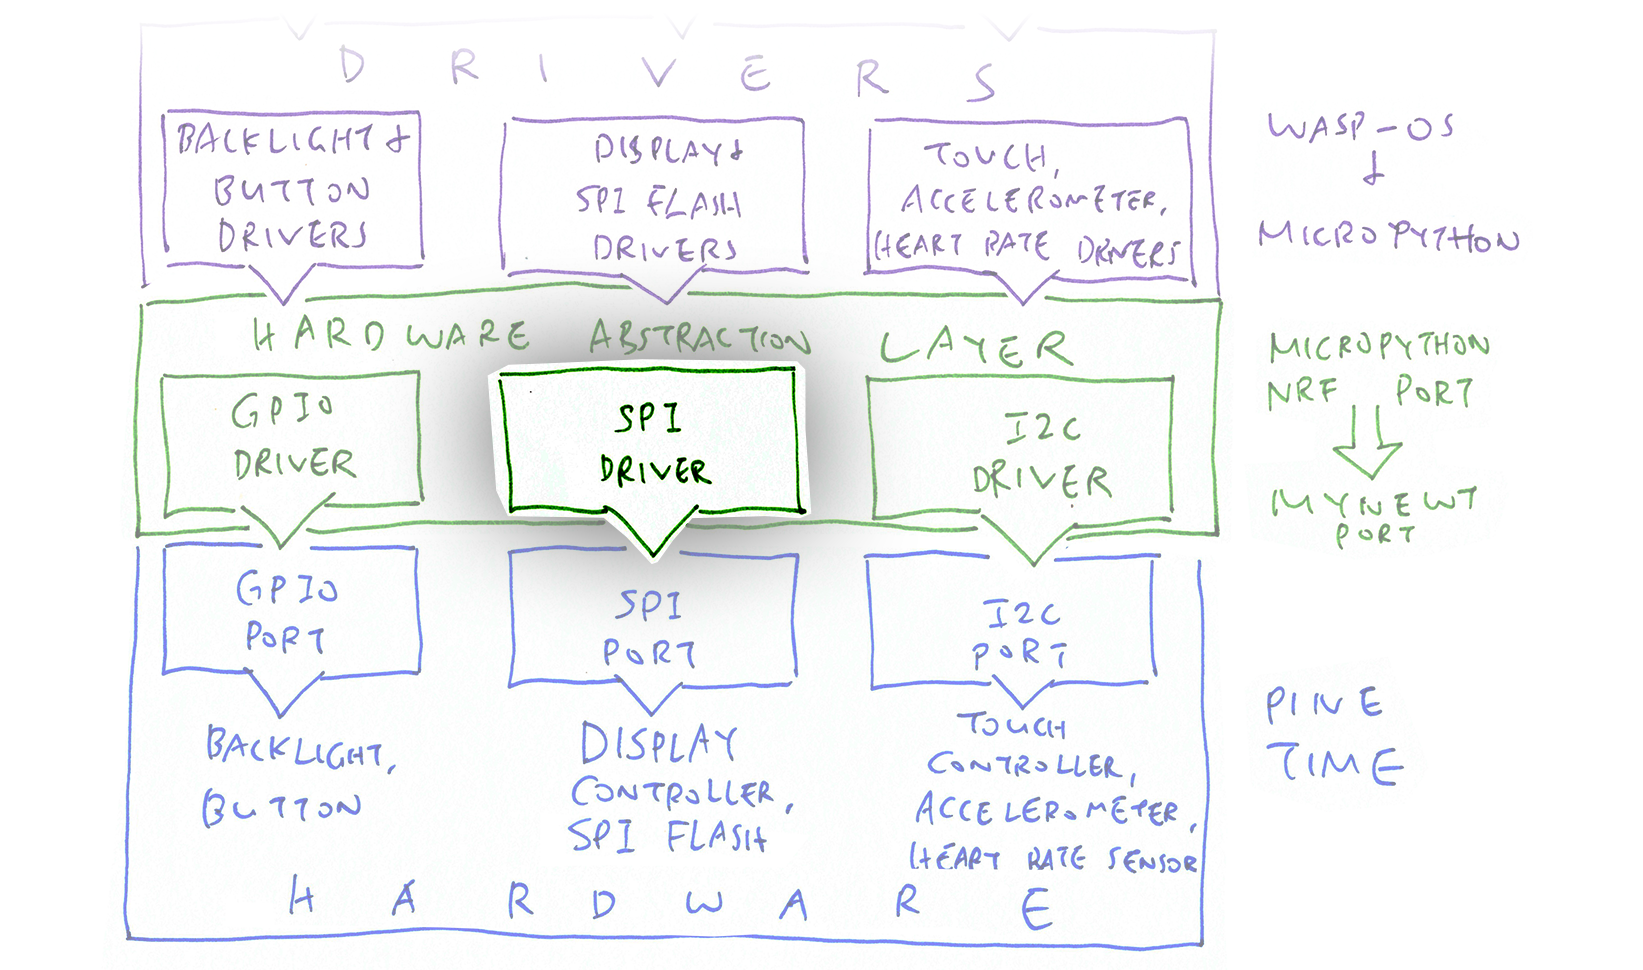 DRIVERS
BACKLIGHT &
BUTTON
DRIVERS
DISPLAY &
SPI FLASH
DRIVERS
TOUCH,
ACCELEROMETER,
HEART RATE DRIVERS
WASP-OS
&
MICROPYTHON
HARDWARE ABSTRACTION LAYER
GPIO
DRIVER
SPI
DRIVER
I2C
DRIVER
MICROPYTHON
NRF PORT
MYNEWT
PORT
GPIO
PORT
SPI
PORT
I2C
PORT
BACKLIGHT,
BUTTON
DISPLAY
CONTROLLER,
SPI FLASH
TOUCH
CONTROLLER,
ACCELEROMETER,
HEART RATE SENSOR
PINE
TIME
HARDWARE